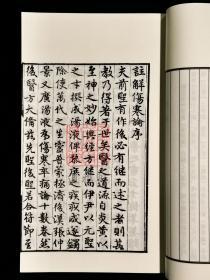 註解傷寒論序
夫前聖有作後必有繼而述之者則其
教乃得著于世矣醫之道源自炎黃以
至神之妙始興經方繼而伊尹以元聖
之才撰成湯液俾黎庶之疾疚咸遂蠲
除使萬代之生靈普蒙拯濟後漢張仲
景又廣湯液為傷寒卒病論十數卷然
後醫方大備茲先聖後聖若合符節至